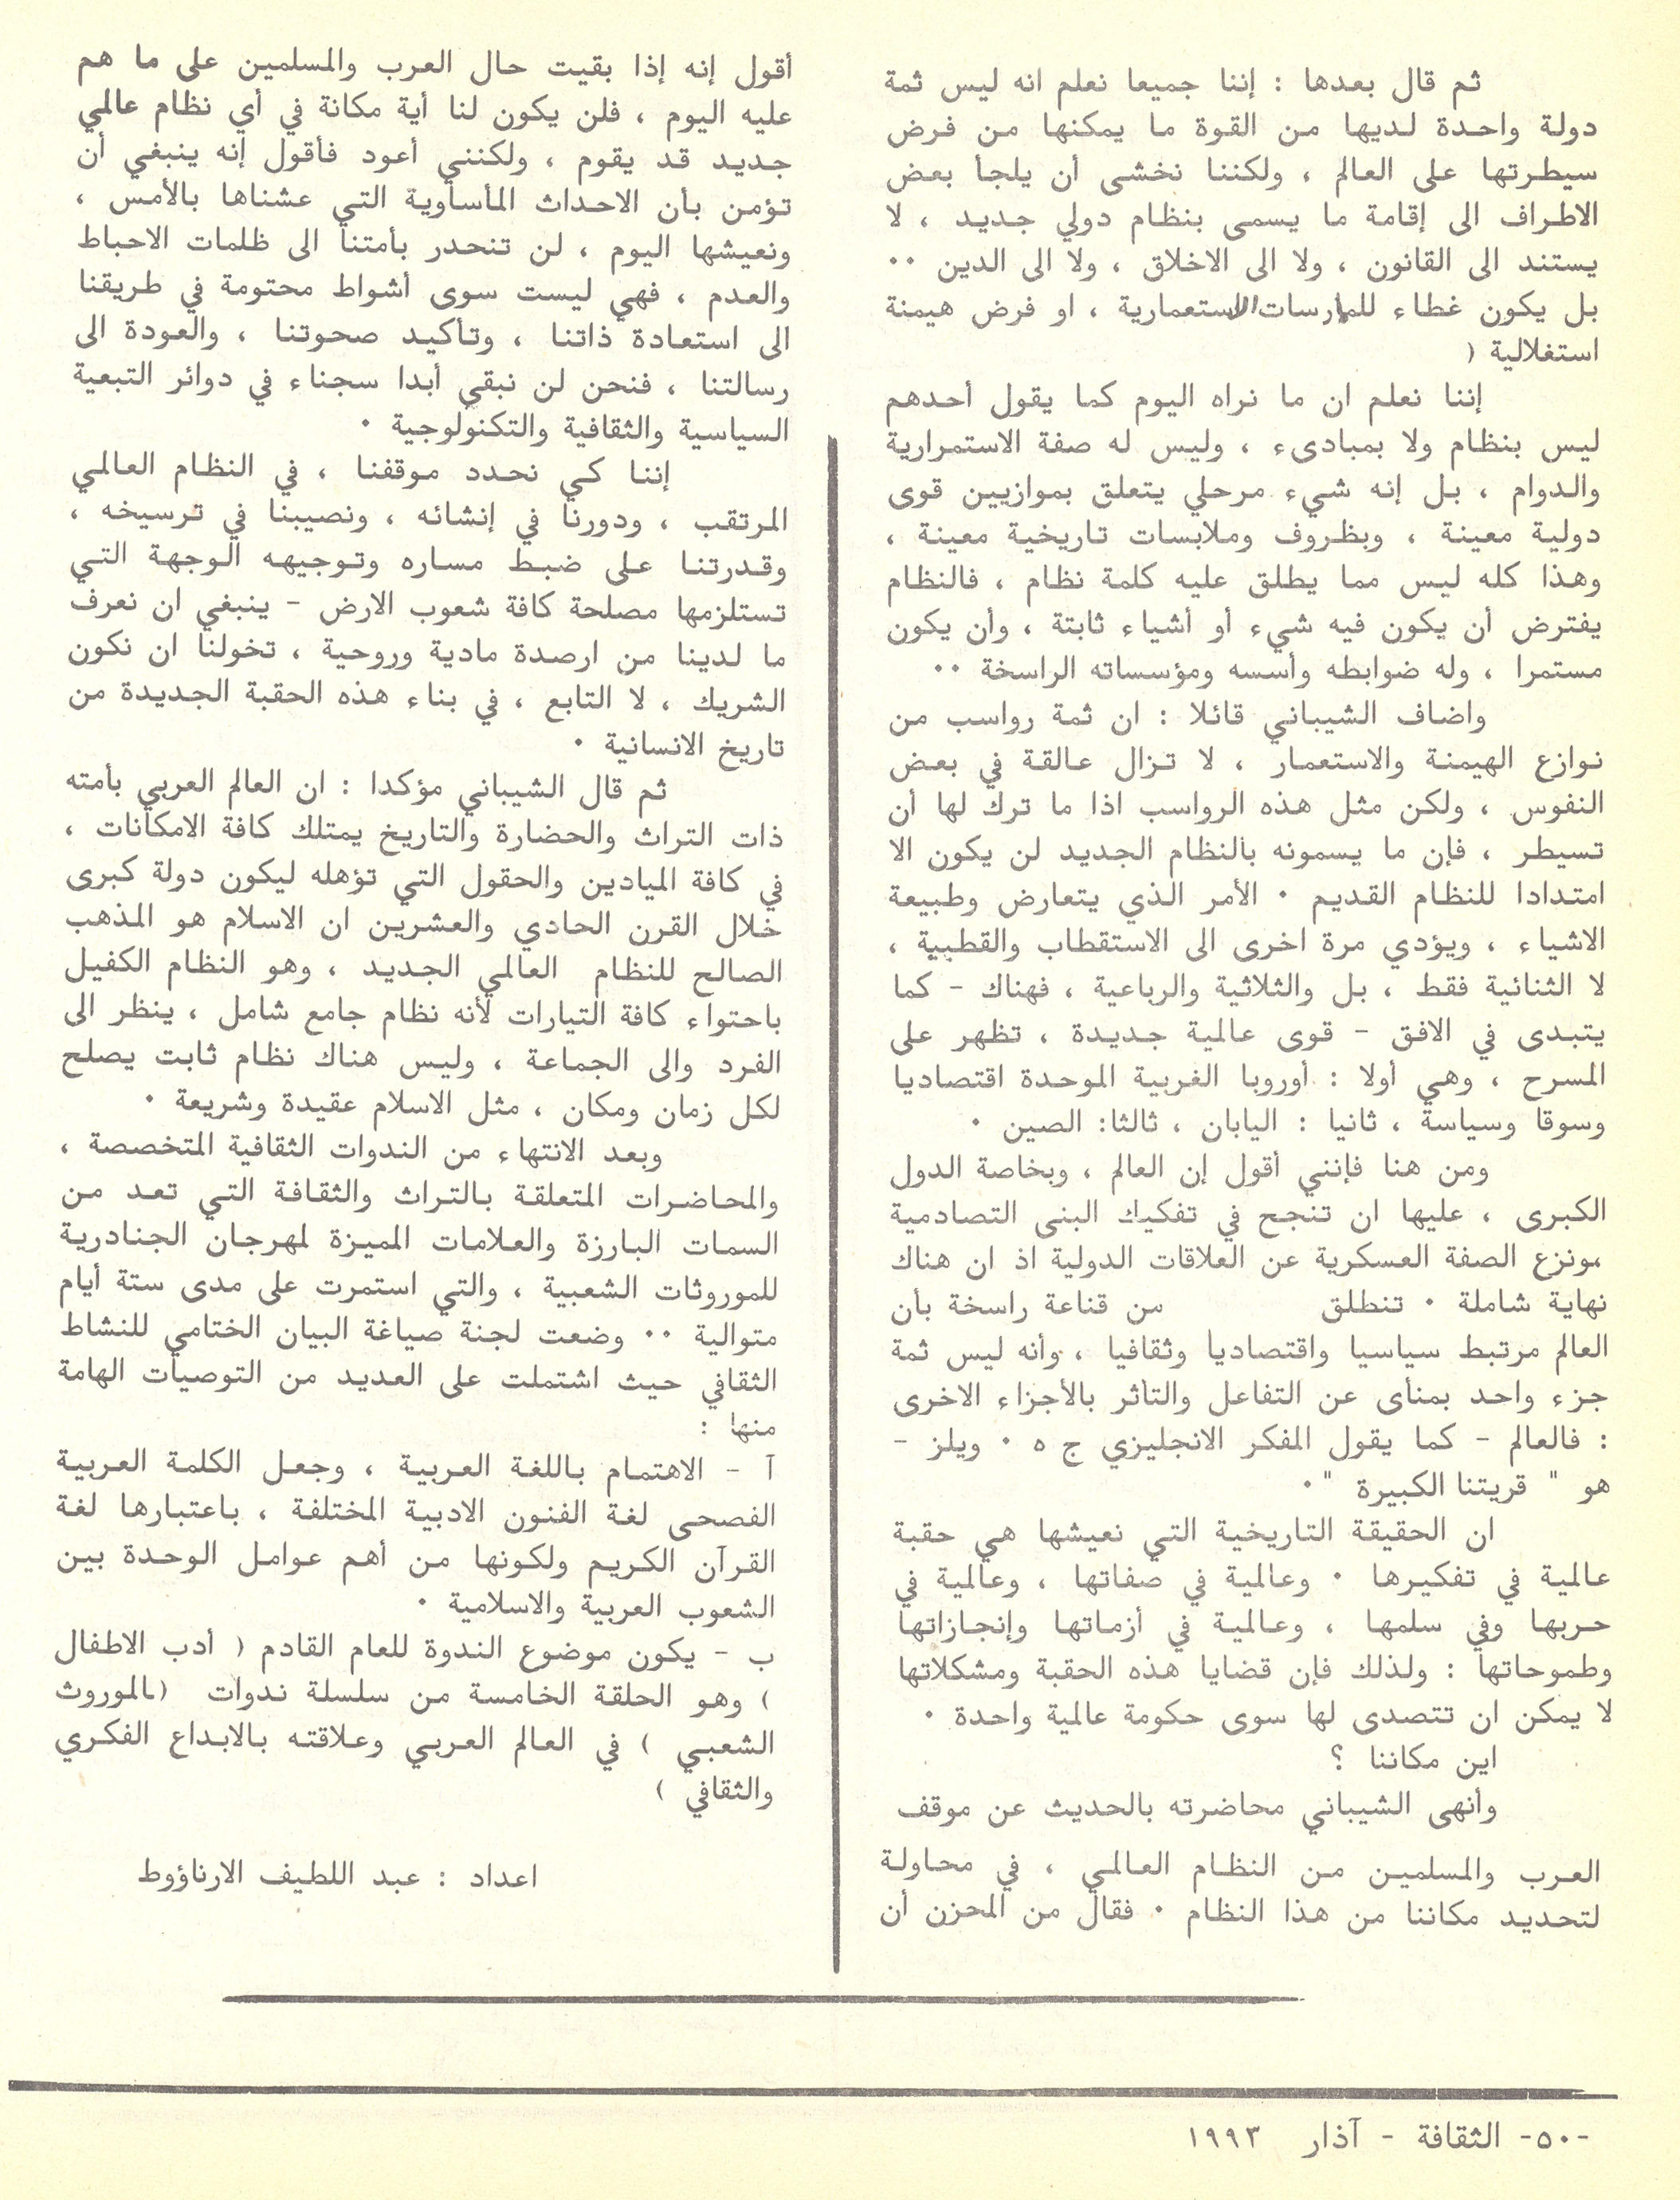 ثم قال بعدها : إننا جميعا نعلم انه ليس ثمة
دولة واحدة لديها من القوة ما يمكنها من فرض
سيطرتها على العالم ، ولكننا نخشى أن يلجأ بعض
الاطراف الى إقامة ما يسمى بنظام دولي جديد ، لا
يستند الى القانون ، ولا الى الاخلاق ، ولا الى الدين ٠٠
بل يكون غطاء للمارسات الاستعمارية ، او فرض هيمنة
استغلالية (
إننا نعلم ان ما نراه اليوم كما يقول أحدهم
ليس بنظام ولا بمبادىء ، وليس له صفة الاستمرارية
والدوام ، بل إنه شيء مرحلي يتعلق بموازيين قوى
دولية معينة ، وبظروف وملابسات تاريخية معينة ،
وهذا كله ليس مما يطلق عليه كلمة نظام ، فالنظام
يفترض أن يكون فيه شيء أو أشياء ثابتة ، وأن يكون
مستمرا ، وله ضوابطه وأسسه ومؤسساته الراسخة ٠٠
واضاف الشيباني قائلا : ان ثمة رواسب من
نوازع الهيمنة والاستعمار ، لا تزال عالقة في بعض
النفوس ، ولكن مثل هذه الرواسب اذا ما ترك لها أن
تسيطر ، فإن ما يسمونه بالنظام الجديد لن يكون الا
امتدادا للنظام القديم ٠ الأمر الذي يتعارض وطبيعة
الاشياء ، ويؤدي مرة اخرى الى الاستقطاب والقطبية ،
لا الثنائية فقط ، بل والثلاثية والرباعية ، فهناك - كما
يتبدى في الافق - قوى عالمية جديدة ، تظهر على
المسرح ، وهي أولا : أوروبا الغربية الموحدة اقتصاديا
وسوقا وسياسة ، ثانيا : اليابان ، ثالثا: الصين ٠
ومن هنا فإنني أقول إن العالم ، وبخاصة الدول
الكبرى ، عليها ان تنجح في تفكيك البنى التصادمية
،ونزع الصفة العسكرية عن العلاقات الدولية اذ ان هناك
نهاية شاملة ٠ تنطلق من قناعة راسخة بأن
العالم مرتبط سياسيا واقتصاديا وثقافيا ، وأنه ليس ثمة
جزء واحد بمنأى عن التفاعل والتأثر بالأجزاء الاخرى
: فالعالم - كما يقول المفكر الانجليزي ج ه ٠ ويلز -
هو " قريتنا الكبيرة " ٠
ان الحقيقة التاريخية التي نعيشها هي حقبة
عالمية في تفكيرها ٠ وعالمية في صفاتها ، وعالمية في
حربها وفي سلمها ، وعالمية في أزماتها وإنجازاتها
وطموحاتها : ولذلك فإن قضايا هذه الحقبة ومشكلاتها
لا يمكن ان تتصدى لها سوى حكومة عالمية واحدة ٠
اين مكاننا ؟
وأنهى الشيباني محاضرته بالحديث عن موقف
العرب والمسلمين من النظام العالمي ، في محاولة
لتحديد مكاننا من هذا النظام ٠ فقال من المحزن أن
أقول إنه إذا بقيت حال العرب والمسلمين على ما هم
عليه اليوم ، فلن يكون لنا أية مكانة في أي نظام عالمي
جديد قد يقوم ، ولكنني أعود فأقول إنه ينبغي أن
تؤمن بأن الاحداث المأساوية التي عشناها بالأمس ،
ونعيشها اليوم ، لن تنحدر بأمتنا الى ظلمات الاحباط
والعدم ، فهي ليست سوى أشواط محتومة في طريقنا
الى استعادة ذاتنا ، وتأكيد صحوتنا ، والعودة الى
رسالتنا ، فنحن لن نبقى أبدا سجناء في دوائر التبعية
السياسية والثقافية والتكنولوجية ٠
إننا كي نحدد موقفنا ، في النظام العالمي
المرتقب ، ودورنا في إنشائه ، ونصيبنا في ترسيخه ،
وقدرتنا على ضبط مساره وتوجيهه الوجهة التي
تستلزمها مصلحة كافة شعوب الارض - ينبغي ان نعرف
ما لدينا من ارصدة مادية وروحية ، تخولنا ان نكون
الشريك ، لا التابع ، في بناء هذه الحقبة الجديدة من
تاريخ الانسانية ٠
ثم قال الشيباني مؤكدا : ان العالم العربي بأمته
ذات التراث والحضارة والتاريخ يمتلك كافة الامكانات ،
في كافة الميادين والحقول التي تؤهله ليكون دولة كبرى
خلال القرن الحادي والعشرين ان الاسلام هو المذهب
الصالح للنظام العالمي الجديد ، وهو النظام الكفيل
باحتواء كافة التيارات لأنه نظام جامع شامل ، ينظر الى
الفرد والى الجماعة ، وليس هناك نظام ثابت يصلح
لكل زمان ومكان ، مثل الاسلام عقيدة وشريعة ٠
وبعد الانتهاء من الندوات الثقافية المتخصصة ،
والمحاضرات المتعلقة بالتراث والثقافة التي تعد من
السمات البارزة والعلامات المميزة لمهرجان الجنادرية
للموروثات الشعبية ، والتي استمرت على مدى ستة أيام
متوالية ٠٠ وضعت لجنة صياغة البيان الختامي للنشاط
الثقافي حيث اشتملت على العديد من التوصيات الهامة
منها :
آ - الاهتمام باللغة العربية ، وجعل الكلمة العربية
الفصحى لغة الفنون الادبية المختلفة ، باعتبارها لغة
القرآن الكريم ولكونها من أهم عوامل الوحدة بين
الشعوب العربية والاسلامية ٠
ب - يكون موضوع الندوة للعام القادم ( أدب الاطفال
) وهو الحلقة الخامسة من سلسلة ندوات (الموروث
الشعبي ) في العالم العربي وعلاقته بالابداع الفكري
والثقافي )
اعداد : عبد اللطيف الارناؤوط
-٥٠- الثقافة - آذار ١٩٩٣